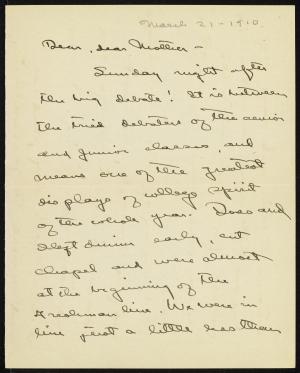 March 21-1910
Dear, dear Mother -
Sunday night after
the big debate! It is between
the tried debaters of the senior
and junior classes, and
means one of the greatest
displays of college spirit
of the whole year. Does and
I left dinner early, cut
chapel and were almost
at the beginning of the
Freshman line. We were in
line just a little less than